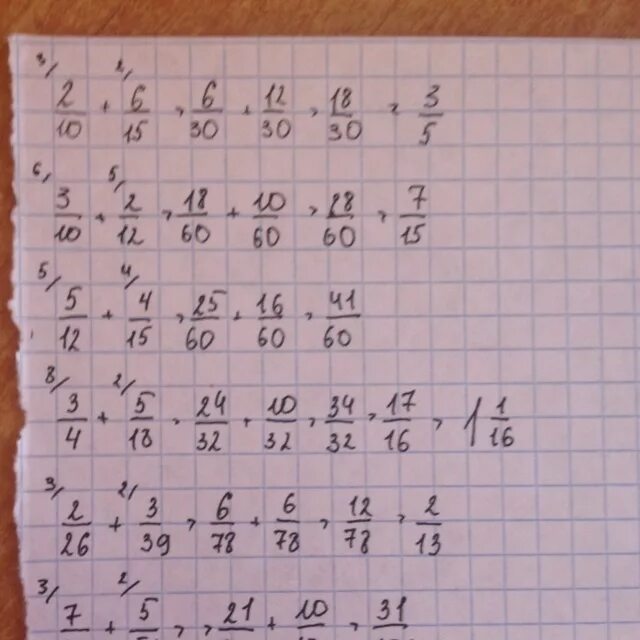 3/ 2/
2/10 + 6/15 = 6/30 + 12/30 = 18/30 = 3/5
6/ 5/
3/10 + 2/12 = 18/60 + 10/60 = 28/60 = 7/15
5/ 4/
5/12 + 4/15 = 25/60 + 16/60 = 41/60
8/ 2/
3/4 + 5/18 = 24/32 + 10/32 = 34/32 = 17/16 = 1 1/16
3/ 2/
2/26 + 3/39 = 6/78 + 6/78 = 12/78 = 2/13
3/ 2/
7 + 5 = 21 + 10 = 31